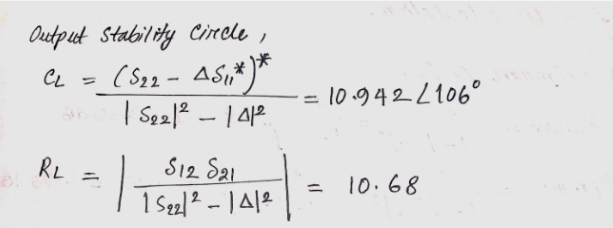 Output Stability Circle,
CL = (S22 - ΔS11*)* / |S22|² - |Δ|² = 10.942∠106°
RL = | S12 S21 / |S22|² - |Δ|² | = 10.68